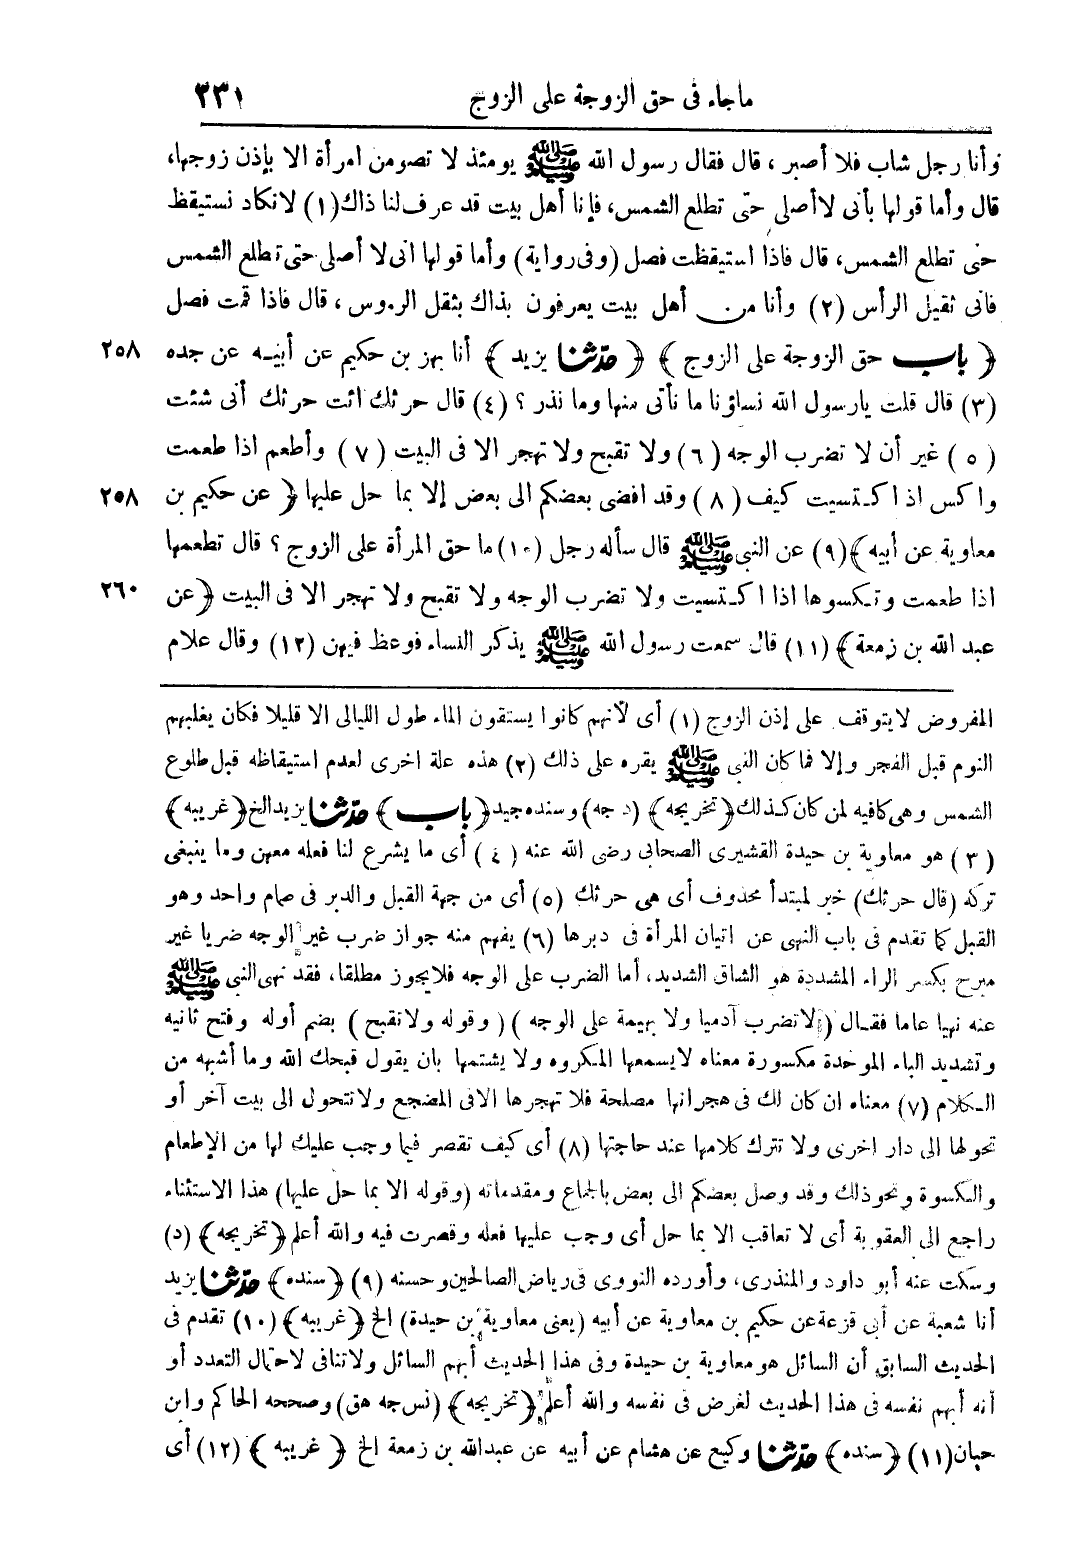 ماجاء فى حق الزوجة على الزوج ٢٣١
وأنا رجل شاب فلا أصبر ، قال فقال رسول الله ﷺ يومئذ لا تصومن امرأة الا بإذن زوجها،
قال وأما قولها بأنى لاأصلى حتى تطلع الشمس، فإنا أهل بيت قد عرف لنا ذاك(١) لانكاد نستيقظ
حتى تطلع الشمس، قال فاذا استيقظت فصل (وفى رواية) وأما قولها انى لا أصلى حتى تطلع الشمس
فانى ثقيل الرأس (٢) وأنا من أهل بيت يعرفون بذاك بثقل الرءوس ، قال فاذا قمت فصل
﴿ باب حق الزوجة على الزوج ﴾ ﴿ حدثنا يزيد ﴾ أنا بهز بن حكيم عن أبيه عن جده ٢٥٨
(٣) قال قلت يارسول الله نساؤنا ما نأتى منها وما نذر ؟ (٤) قال حرثك ائت حرثك أنى شئت
(٥) غير أن لا تضرب الوجه (٦) ولا تقبح ولا تهجر الا فى البيت (٧) وأطعم اذا طعمت
واكس اذا كتسيت كيف (٨) وقد افضى بعضكم الى بعض إلا بما حل عليها ﴿ عن حكيم بن ٢٥٨
معاوية عن أبيه﴾(٩) عن النبى ﷺ قال سأله رجل (١٠) ما حق المرأة على الزوج ؟ قال تطعمها
اذا طعمت وتكسوها اذا اكتسيت ولا تضرب الوجه ولا تقبح ولا تهجر الا فى البيت ﴿عن ٢٦٠
عبد الله بن زمعة﴾ (١١) قال سمعت رسول الله ﷺ يذكر النساء فوعظ فيهن (١٢) وقال علام
المفروض لايتوقف على إذن الزوج (١) أى لأنهم كانوا يستقون الماء طول الليالى الا قليلا فكان يغلبهم
النوم قبل الفجر وإلا فما كان النبى ﷺ يقره على ذلك (٢) هذه علة اخرى لعدم استيقاظه قبل طلوع
الشمس وهى كافيه لمن كان كذلك ﴿تخريجه﴾ (د جه) وسنده جيد ﴿باب﴾ حدثنا يزيد الخ ﴿غريبه﴾
(٣) هو معاوية بن حيدة القشيرى الصحابى رضى الله عنه (٤) أى ما يشرع لنا فعله معهن وما ينبغى
تركه (قال حرثك) خبر لمبتدأ محذوف أى هى حرثك (٥) أى من جهة القبل والدبر فى صمام واحد وهو
القبل كما تقدم فى باب النهى عن اتيان المرأة فى دبرها (٦) يفهم منه جواز ضرب غير الوجه ضربا غير
مبرح بكسر الراء المشددة هو الشاق الشديد، أما الضرب على الوجه فلايجوز مطلقا، فقد نهى النبى ﷺ
عنه نهيا عاما فقال (لاتضرب آدميا ولا بهيمة على الوجه) (وقوله ولاتقبح) بضم أوله وفتح ثانيه
وتشديد الباء الموحدة مكسورة معناه لايسمعها المكروه ولا يشتمها بان يقول قبحك الله وما أشبهه من
الكلام (٧) معناه ان كان لك فى هجرانها مصلحة فلا تهجرها الافى المضجع ولاتتحول الى بيت آخر أو
تحولها الى دار اخرى ولا تترك كلامها عند حاجتها (٨) أى كيف تقصر فيما وجب عليك لها من الإطعام
والكسوة ونحوذلك وقد وصل بعضكم الى بعض بالجماع ومقدماته (وقوله الا بما حل عليها) هذا الاستثناء
راجع الى العقوبة أى لا تعاقب الا بما حل أى وجب عليها فعله وقصرت فيه والله أعلم ﴿تخريجه﴾ (د)
وسكت عنه أبو داود والمنذرى، وأورده النووى فى رياض الصالحين وحسنه (٩) ﴿سنده﴾ حدثنا يزيد
أنا شعبة عن أبى قزعة عن حكيم بن معاوية عن أبيه (يعنى معاوية بن حيدة) الخ ﴿غريبه﴾ (١٠) تقدم فى
الحديث السابق أن السائل هو معاوية بن حيدة وفى هذا الحديث أبهم السائل ولاتنافى لاحتمال التعدد أو
أنه أبهم نفسه فى هذا الحديث لغرض فى نفسه والله أعلم ﴿تخريجه﴾ (نس جه هق) وصححه الحاكم وابن
حبان(١١) ﴿سنده﴾ حدثنا وكيع عن هشام عن أبيه عن عبدالله بن زمعة الخ ﴿غريبه﴾ (١٢) أى